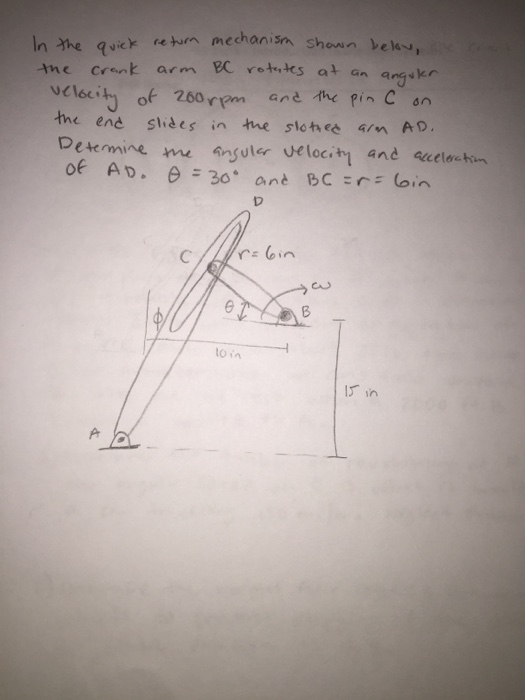 In the quick return mechanism shown below,
the crank arm BC rotates at an angular
velocity of 200rpm and the pin C on
the end slides in the slotted arm AD.
Determine the angular velocity and acceleration
of AD. θ = 30° and BC = r = 6in
D
C r = 6in
ω
θ B
φ
10 in
15 in
A